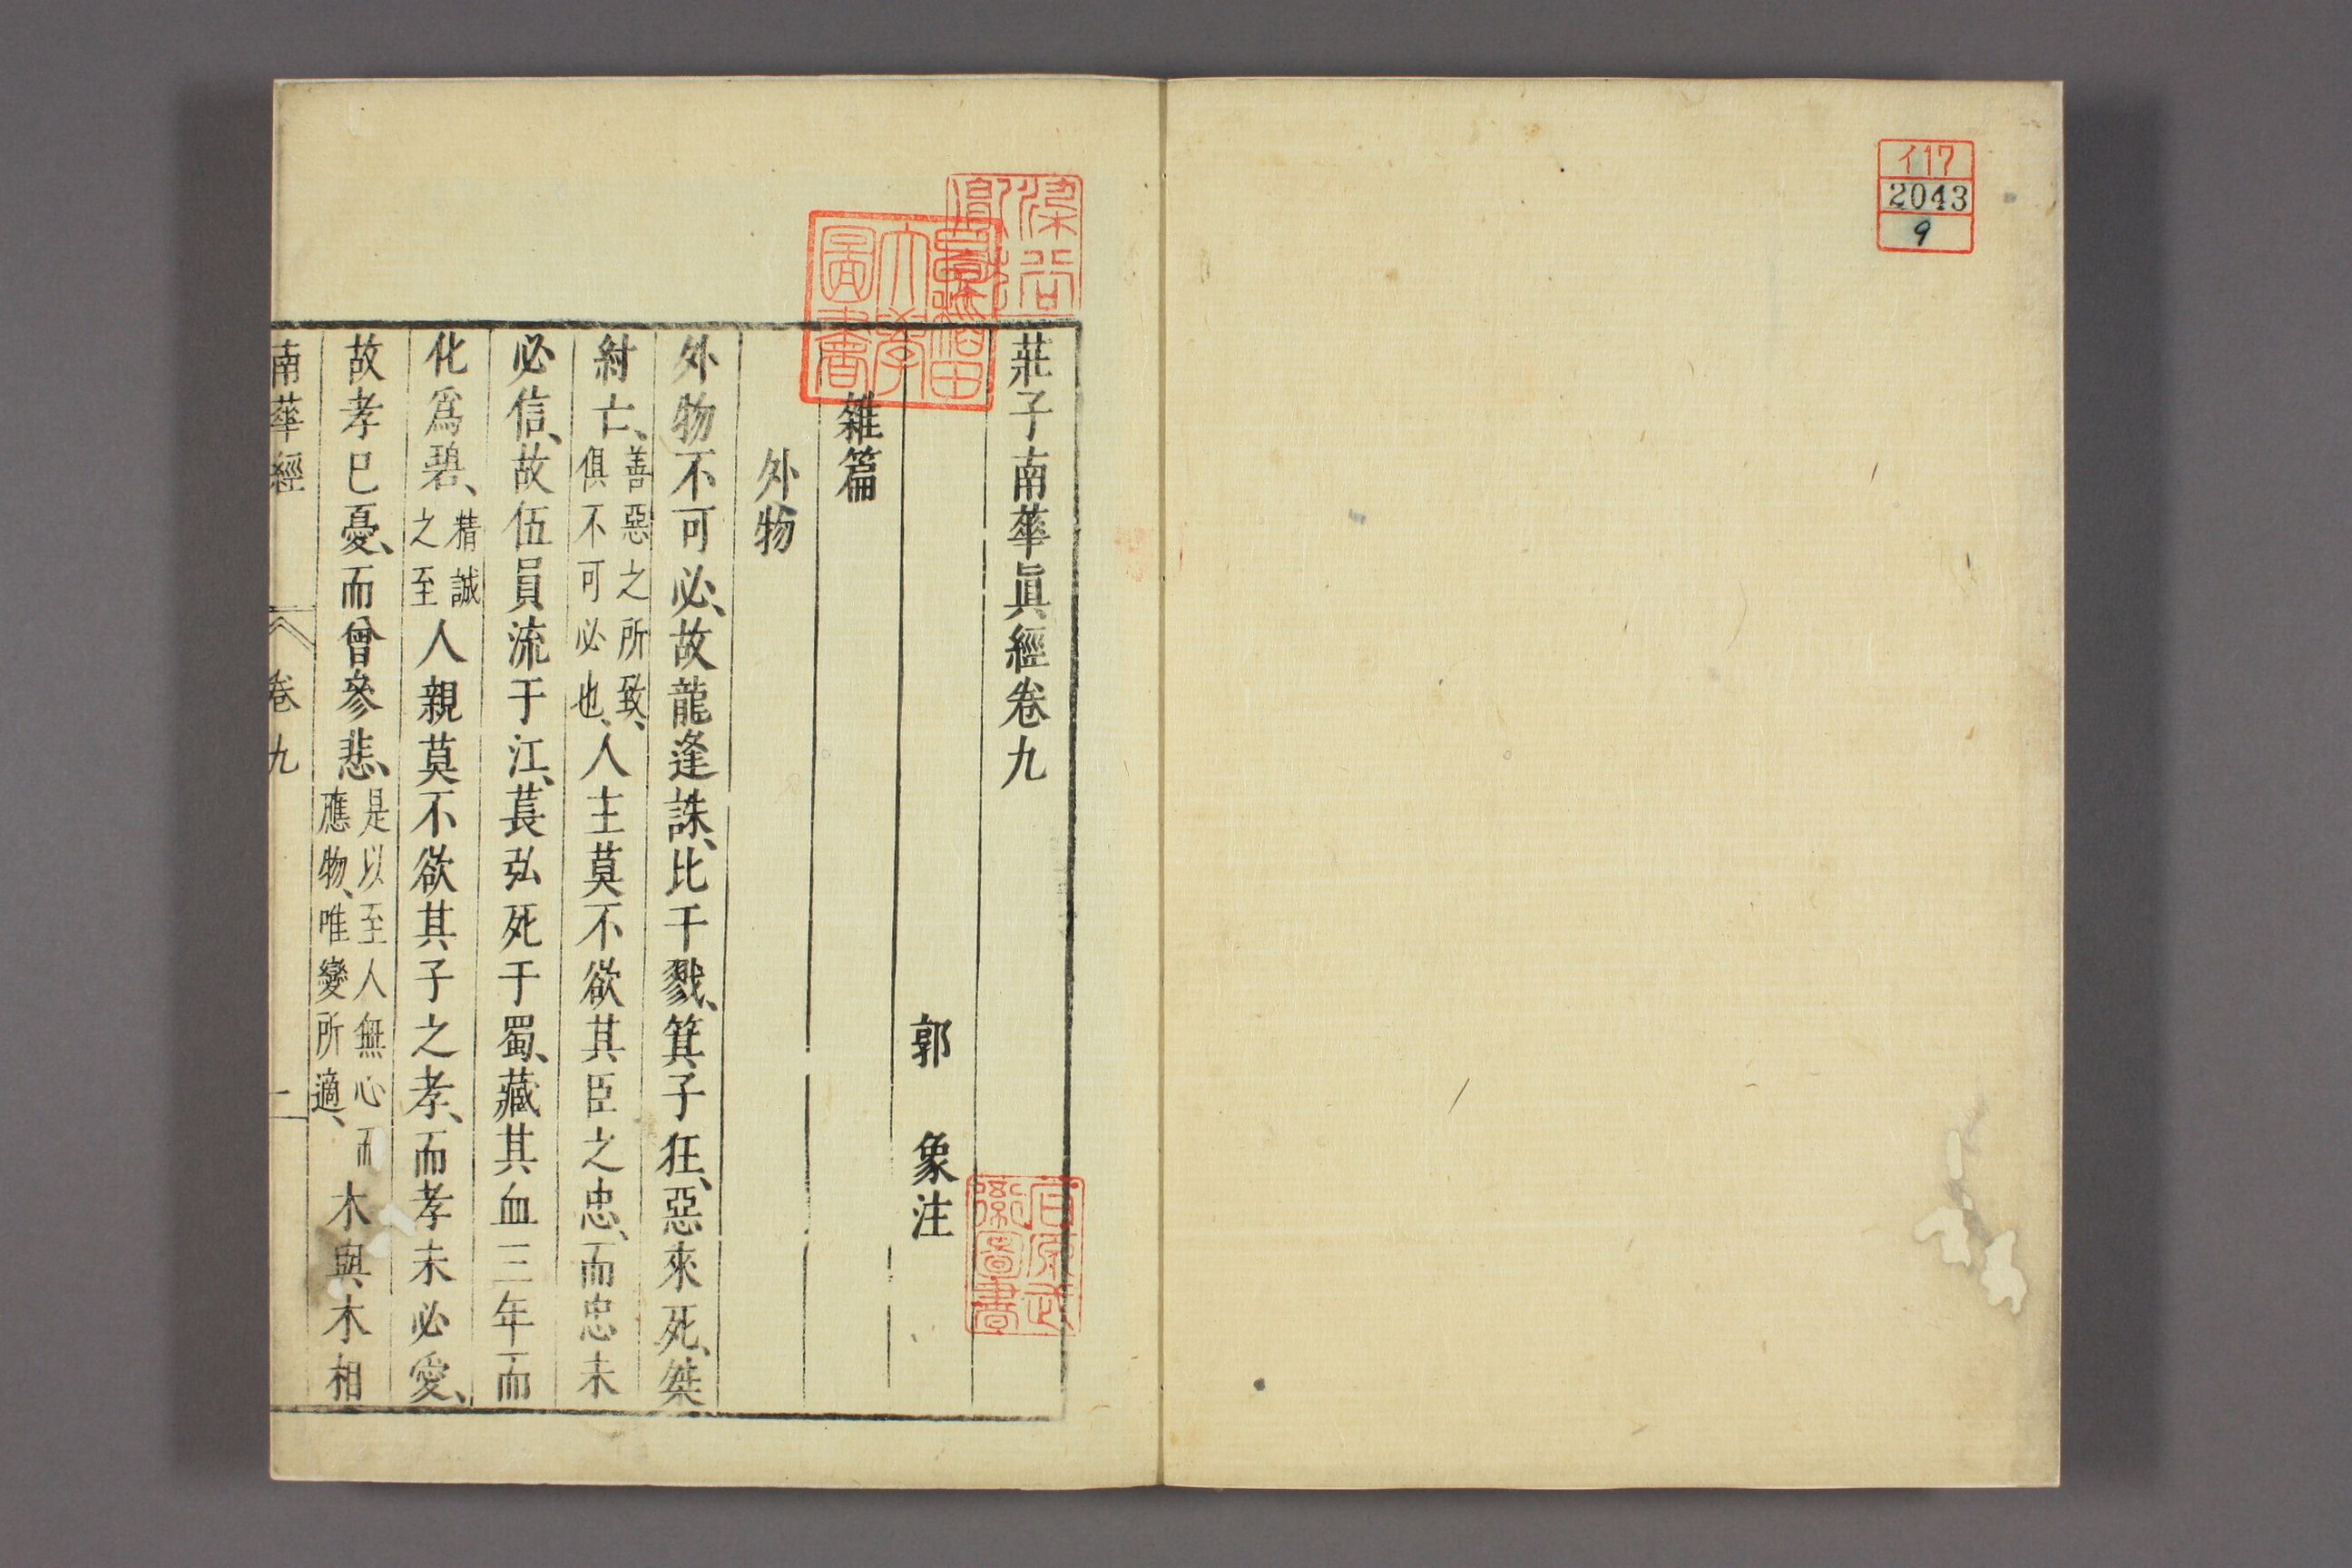 イ17
2043
9
莊子南華眞經卷九
郭 象注
雜篇
外物
外物不可必、故龍逢誅、比干戮、箕子狂、惡來死、桀
紂亡、善惡之所致、俱不可必也、人主莫不欲其臣之忠、而忠未
必信、故伍員流于江、萇弘死于蜀、藏其血三年而
化爲碧、精誠之至人親莫不欲其子之孝、而孝未必愛、
故孝已憂、而曾參悲、是以至人無心而應物、唯變所適、木與木相
南華經 卷九 一
早稻田大學圖書